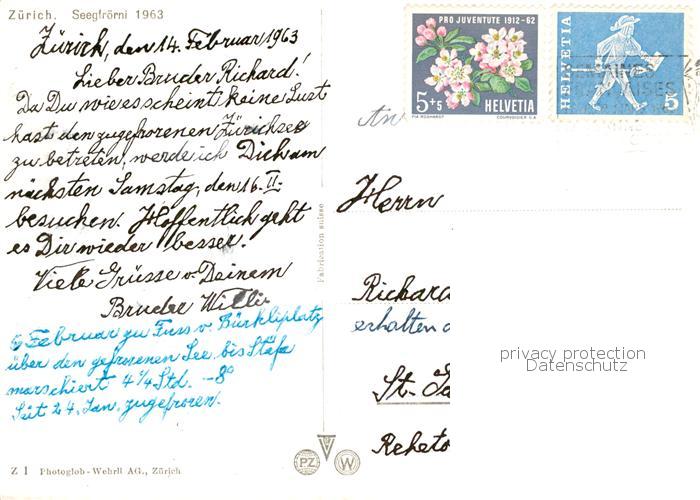 Zürich. Seegfrörni 1963
Zürich, den 14. Februar 1963
Lieber Bruder Richard!
Da Du wie es scheint keine Lust
hast den zugefrorenen Zürichsee
zu betreten, werde ich Dich am
nächsten Samstag, den 16. II.
besuchen. Hoffentlich geht
es Dir wieder besser.
Viele Grüsse v. Deinem
Bruder Willi
Februar zu Fuss v. Bürkliplatz
über den gefrorenen See bis Stäfa
marschiert 4 1/4 Std. -8°
Seit 24. Jan. zugefroren.
Z 1 Photoglob-Wehrli AG., Zürich
Fabrication suisse
PZ
W
PRO JUVENTUTE 1912-62
5+5 HELVETIA
PIA ROSHARDT COURVOISIER S.A.
HELVETIA
5
An
Herrn
Richard
erhalten
privacy protection
Datenschutz
St. Ga
Reheto